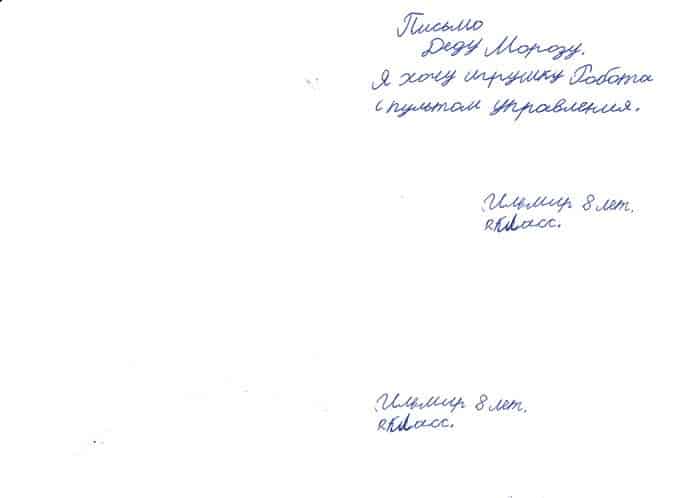 Письмо
Деду Морозу.
Я хочу игрушку Робота
с пультом управления.
Ильмир 8 лет.
2 класс.
Ильмир 8 лет.
2 класс.